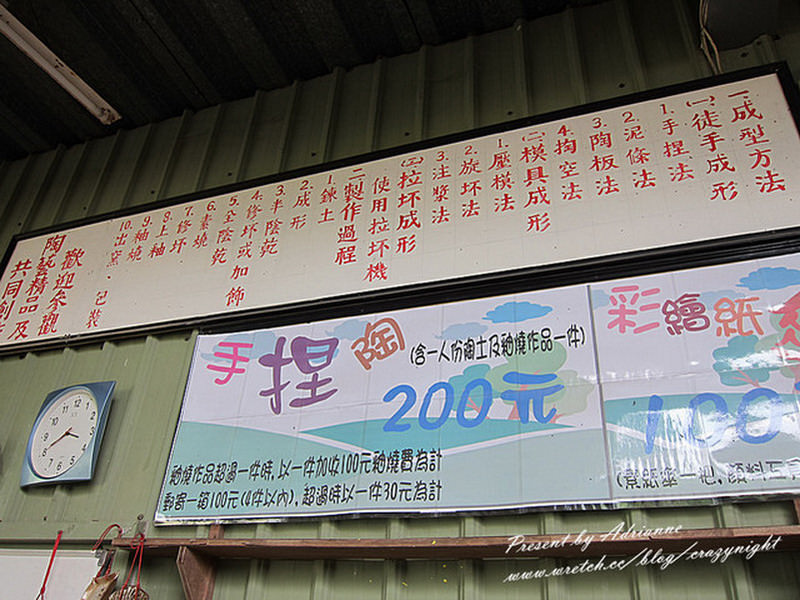 一.成型方法
(一)徒手成形
1.手捏法
2.泥條法
3.陶板法
4.掏空法
(二)模具成形
1.壓模法
2.旋坯法
3.注漿法
(三)拉坏成形
使用拉坏機
二.製作過程
1.鍊土
2.成形
3.半陰乾
4.修坏或加飾
5.全陰乾
6.素燒
7.修坏
8.上釉
9.釉燒
10.出窯
包裝
歡迎參觀
陶藝精品及
共同創
手捏陶(含一人份陶土及釉燒作品一件)
200元
釉燒作品超過一件時,以一件加收100元釉燒費為計
郵寄一箱100元(4件以內),超過時以一件30元為計
彩繪紙
100
12
1
2
3
4
5
6
7
8
9
10
11
Present by Adrianne
www.wretch.cc/blog/crazynight